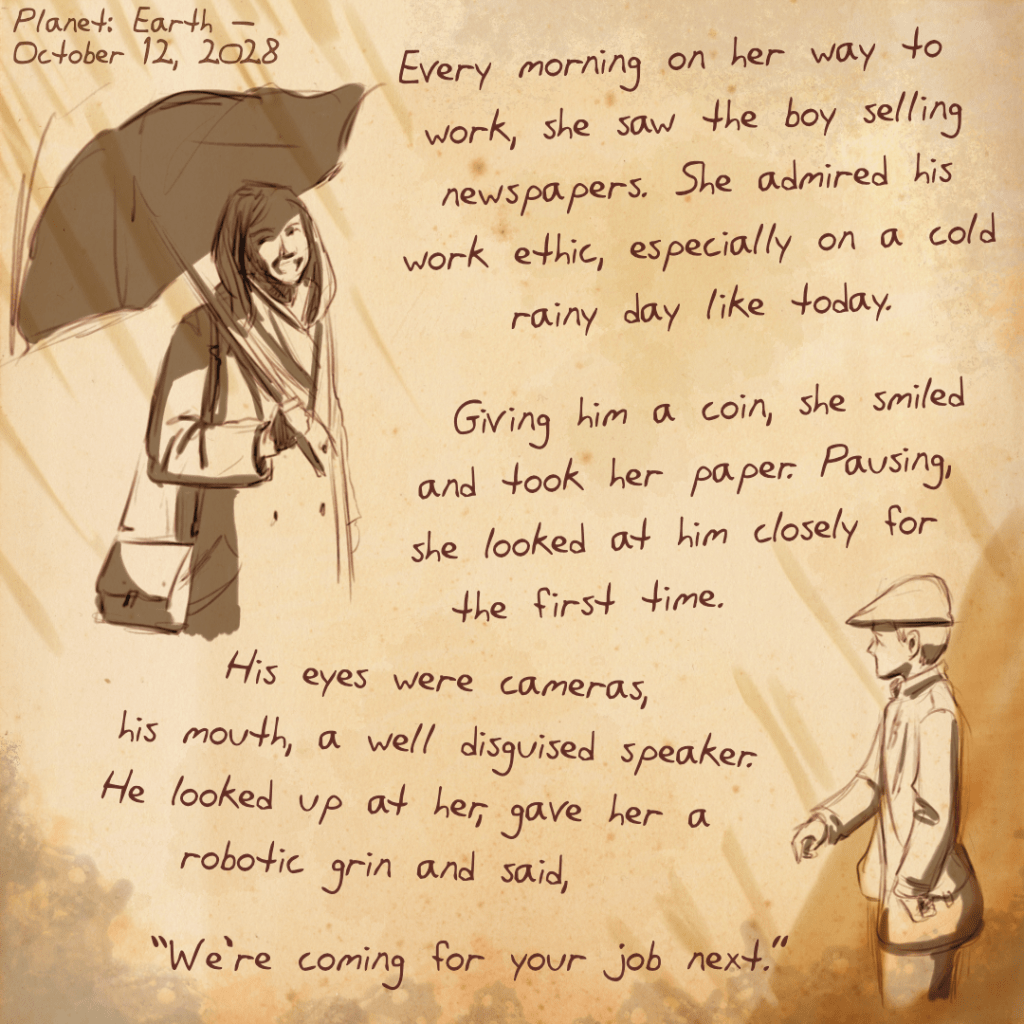 Planet: Earth –
October 12, 2028
Every morning on her way to
work, she saw the boy selling
newspapers. She admired his
work ethic, especially on a cold
rainy day like today.
Giving him a coin, she smiled
and took her paper. Pausing,
she looked at him closely for
the first time.
His eyes were cameras,
his mouth, a well disguised speaker.
He looked up at her, gave her a
robotic grin and said,
"We're coming for your job next."